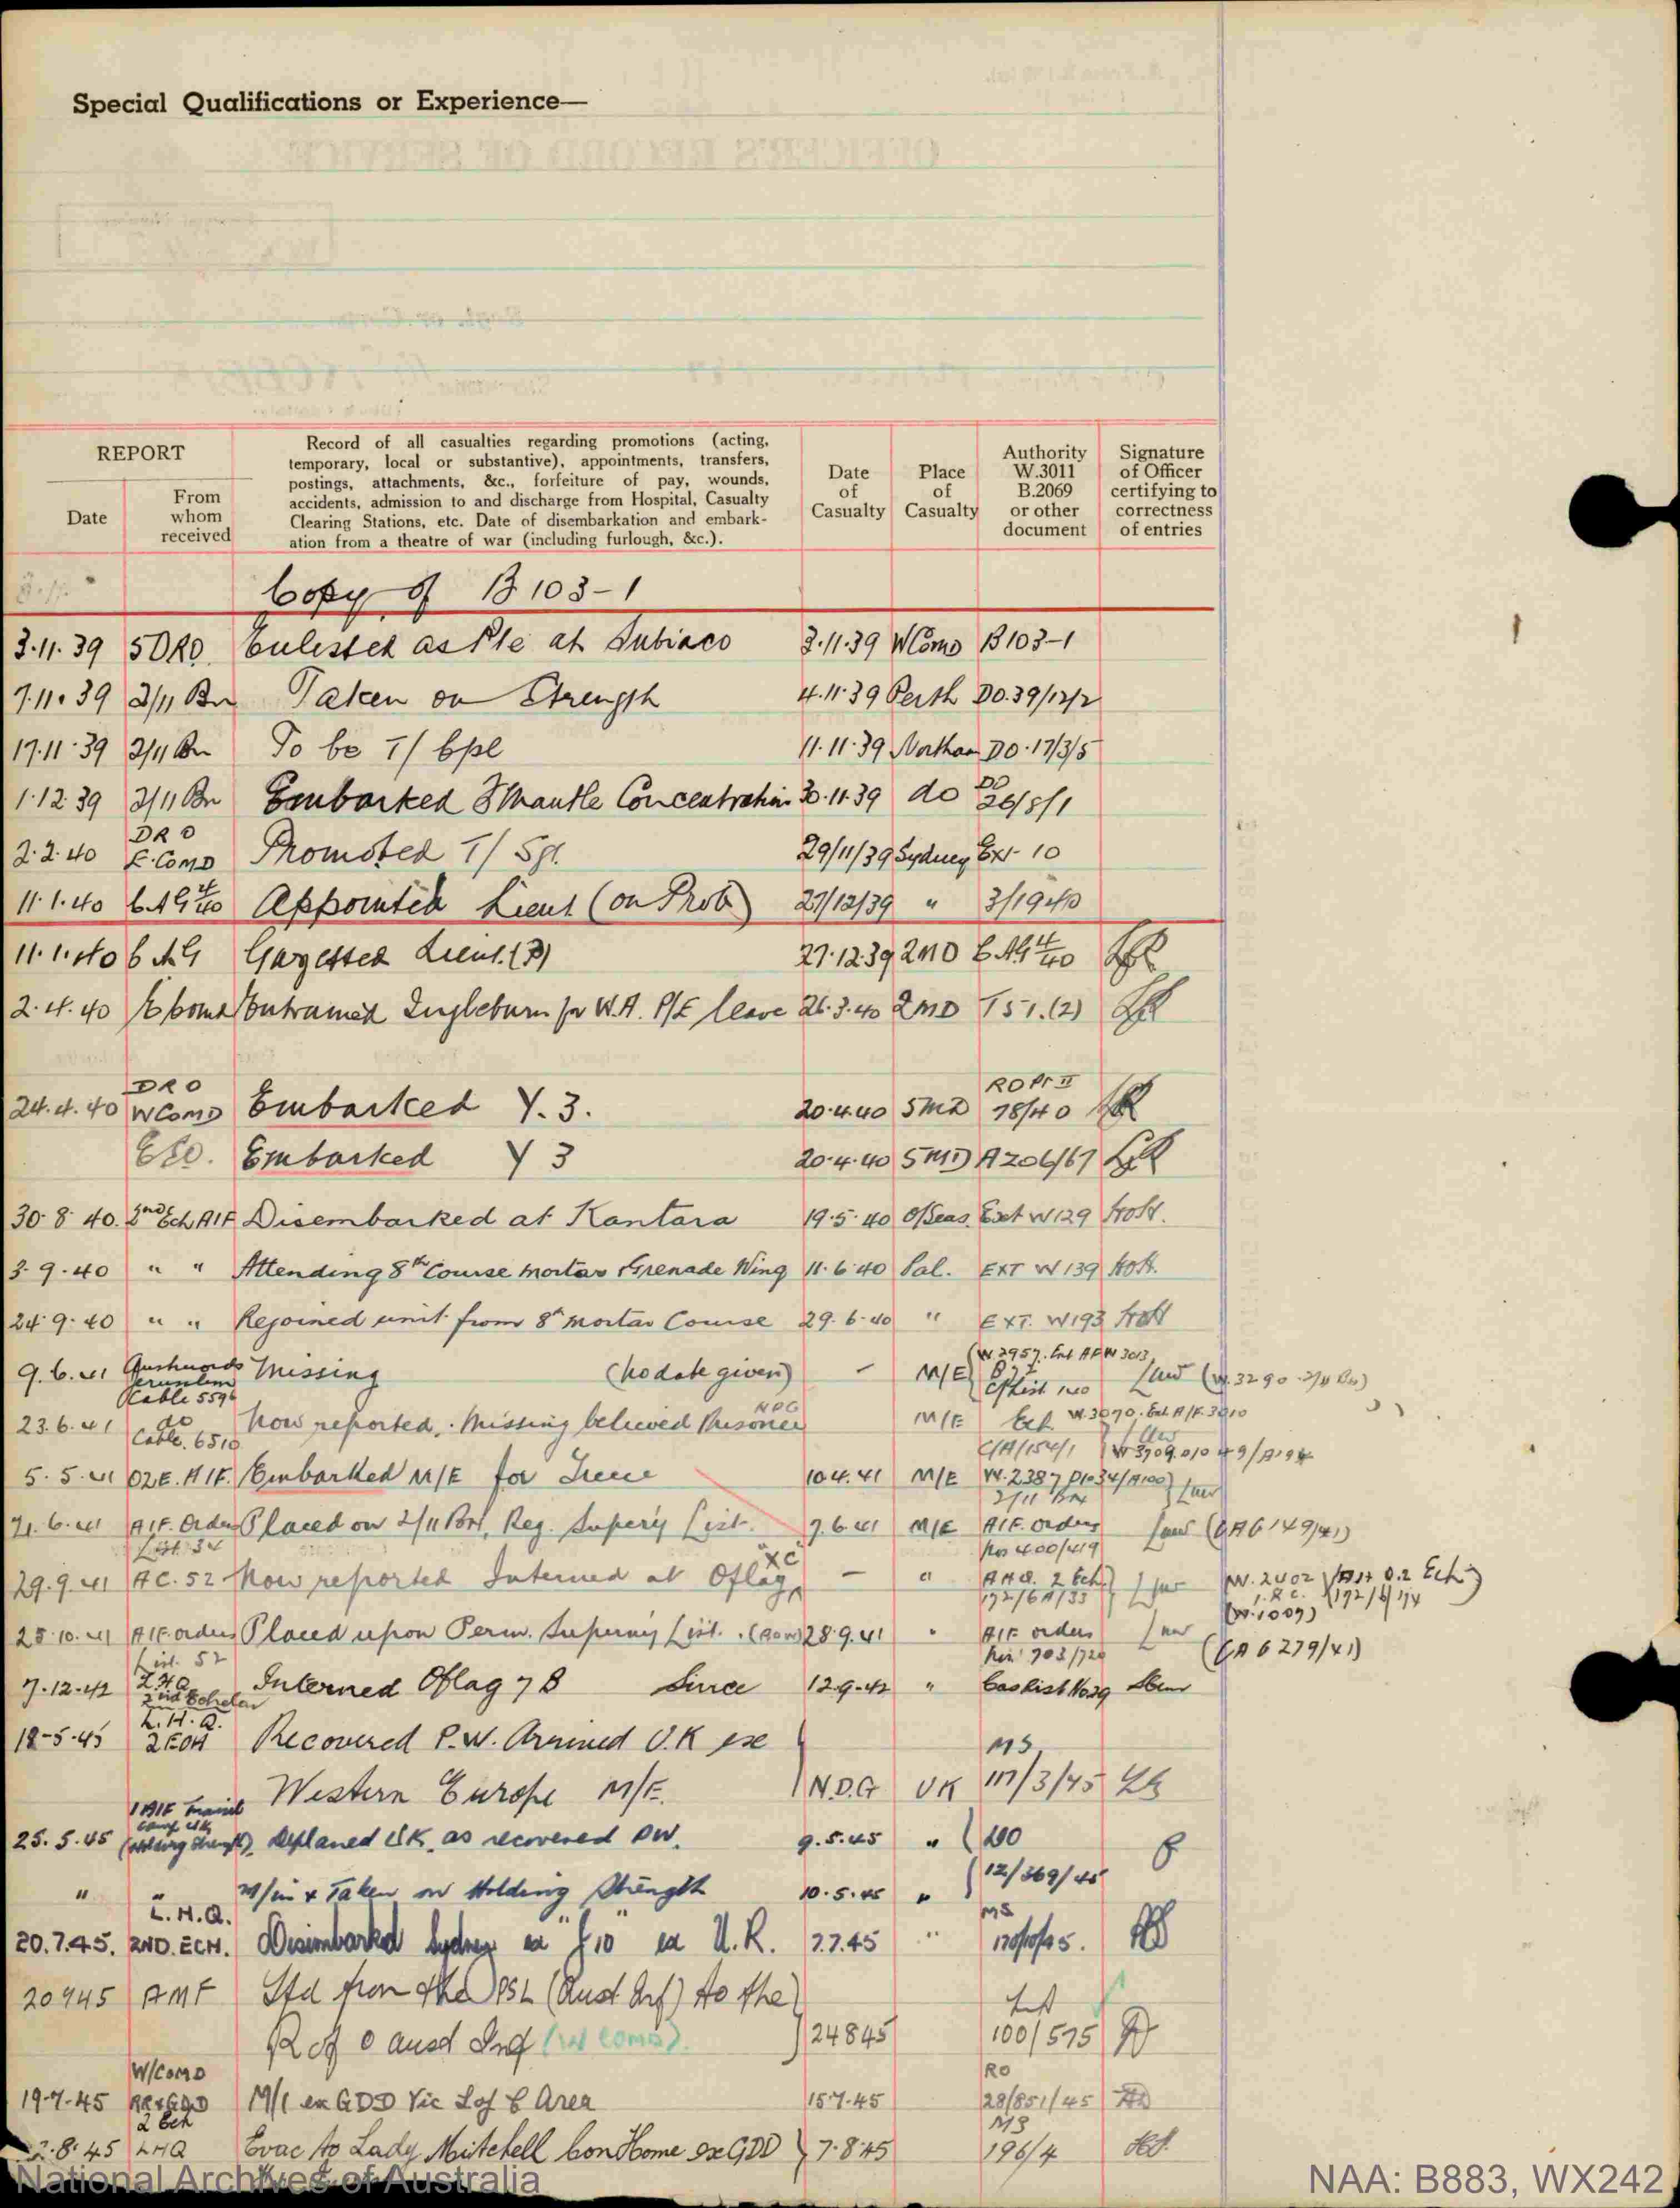 Special Qualifications or Experience—
REPORT
Date
From whom received
Record of all casualties regarding promotions (acting,
temporary, local or substantive), appointments, transfers,
postings, attachments, &c., forfeiture of pay, wounds,
accidents, admission to and discharge from Hospital, Casualty
Clearing Stations, etc. Date of disembarkation and embark-
ation from a theatre of war (including furlough, &c.).
Date of Casualty
Place of Casualty
Authority W.3011 B.2069 or other document
Signature of Officer certifying to correctness of entries
Copy of B 103-1
3.11.39 5DRO Enlisted as Pte at Subiaco 3.11.39 W Comd B103-1
7.11.39 2/11 Bn Taken on Strength 4.11.39 Perth DO.39/12/2
17.11.39 2/11 Bn To be T/ Cpl 11.11.39 Northam DO.17/3/5
1.12.39 2/11 Bn Embarked F'Mantle Concentration 30.11.39 do DO 26/8/1
2.2.40 DRO E.Comd Promoted T/ Sgt. 29/11/39 Sydney Ext 10
11.1.40 C.A.G 4/40 Appointed Lieut (on Prob) 27/12/39 " 3/1940
11.1.40 C.A.G Gazetted Lieut. (P) 27.12.39 2MD C.AG 4/40
2.4.40 E Comd Entrained Ingleburn for W.A. P/E leave 26.3.40 2MD 151.(2)
24.4.40 DRO W Comd Embarked Y.3. 20.4.40 5MD RO Pt II 78/40
Embarked Y 3 20.4.40 5MD A206/67
30.8.40. 2nd Ech AIF Disembarked at Kantara 19.5.40 O/Seas. Ext W129
3.9.40 " " Attending 8th Course Mortar Grenade Wing 11.6.40 Pal. EXT W139
24.9.40 " " Rejoined unit from 8th Mortar Course 29.6.40 " EXT. W193
9.6.41 Austwords Jerusalem Cable 5596 Missing (No date given) - M/E (W 2957. Ext AFW 3013 (W.3290 2/11 Bn)
23.6.41 do Cable. 6510 Now reported. Missing believed Prisoner NDG M/E W.3070
C/A/154/1
5.5.41 02E. AIF. Embarked M/E for Greece 10.4.41 M/E W.2387
2/11 Bn
21.6.41 AIF. Orders List 34 Placed on 2/11 Bn, Reg. Supery List. 7.6.41 M/E AIF. Orders Nos 400/419 (CA6149/41)
29.9.41 AC. 52 Now reported Interned at Oflag XC - " 2 Ech W. 2402
(W.1009)
25.10.41 AIF orders List. 52 Placed upon Perm. Supernuy List. (POW) 28.9.41 " AIF orders (CA6279/41)
7.12.42 LHQ 2nd Echelon Interned Oflag 7B Since 12.9.42 " Caslist
18-5-45 L.H.Q. 2ECH Recovered P.W. Arrived U.K exe
Western Europe M/E. N.D.G UK MS 111/3/45
25.5.45 1 AIF Transit Camp UK (Holding Strength) Deplaned UK. as recovered PW. 9.5.45 "
12/369/45
" " M/in & Taken on Holding Strength 10.5.45 "
20.7.45. L.H.Q. 2ND. ECH. Disembarked Sydney ex "F10" ex U.K. 2.7.45 " MS
20945 AMF Std from the PSL (Aust Inf) to the
R of O Aust Inf (W Comd). 24845 100/575
19-7-45 W/Comd RR&GDD M/I ex GDD Vic L of C Area 157.45 RO 28/851/45
.8.45 2 Ech LHQ Evac to Lady Mitchell Con Home ex GDD 7.8.45 MS 196/4
National Archives of Australia
NAA: B883, WX242